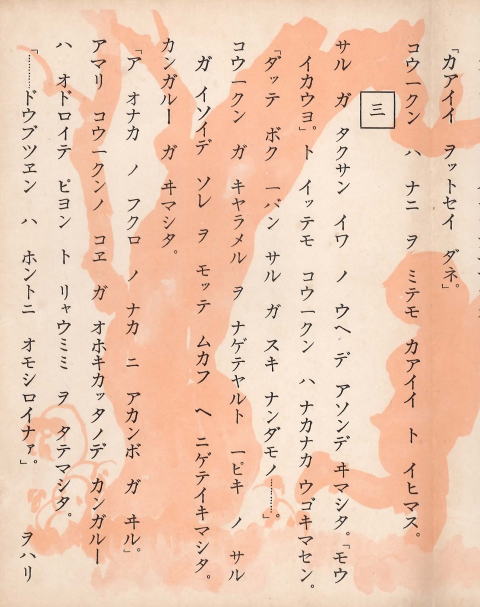 「カアイイ ヲットセイ ダネ。」
コウークン ハ ナニ ヲ ミテモ カアイイ ト イヒマス。
三
サル ガ タクサン イワ ノ ウヘ デ アソンデ ヰマシタ。「モウ
イカウヨ。」ト イッテモ コウークン ハ ナカナカ ウゴキマセン。
「ダッテ ボク 一バン サル ガ スキ ナンダモノ………。」
コウークン ガ キャラメル ヲ ナゲテヤルト 一ピキ ノ サル
ガ イソイデ ソレ ヲ モッテ ムカフ ヘ ニゲテイキマシタ。
カンガルー ガ ヰマシタ。
「ア オナカ ノ フクロ ノ ナカ ニ アカンボ ガ ヰル」。
アマリ コウークンノ コヱ ガ オホキカッタノデ カンガルー
ハ オドロイテ ピヨン ト リャウミミ ヲ タテマシタ。
「………ドウブツヱン ハ ホントニ オモシロイナァ」。 ヲハリ